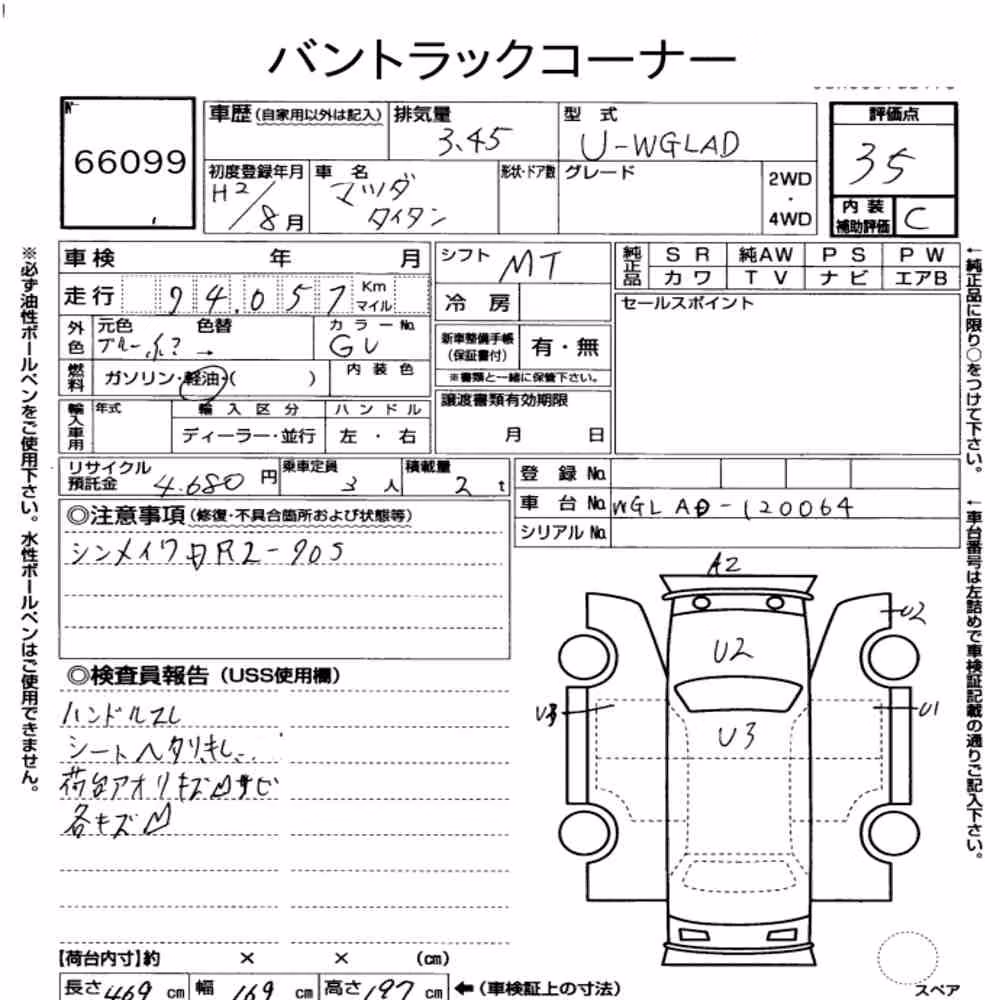 バントラックコーナー
No
66099
車歴(自家用以外は記入)
排気量
3.45
型 式
U-WGLAD
評価点
35
初度登録年月
H2/8月
車 名
マツダ
タイタン
形状・ドア数
グレード
2WD
・
4WD
内 装
補助評価
C
車検 年 月
走行 94.057 Km マイル
外色
元色 色替
ブルー系? →
カラーNo.
GU
燃料
ガソリン・軽油・( )
内 装 色
輸入車用
年式
輸 入 区 分
ディーラー・並行
ハ ン ド ル
左 ・ 右
シフト
MT
冷 房
新車整備手帳
(保証書付)
有・無
※書類と一緒に保管下さい。
譲渡書類有効期限
月 日
純正品
S R 純AW P S P W
カ ワ T V ナ ビ エアB
セールスポイント
リサイクル
預託金
4.680 円
乗車定員
3 人
積載量
2 t
登 録 No.
車 台 No. WGLAD-120064
シリアル No.
◎注意事項(修復・不具合箇所および状態等)
シンメイワ DR2-20S
◎検査員報告(USS使用欄)
ハンドルスレ
シートヘタリ
荷台アオリキズ サビ
各キズ
A2
U2
U2
U3
U3
U1
【荷台内寸】約 × × (cm)
長さ 469 cm 幅 169 cm 高さ 197 cm ←(車検証上の寸法)
スペア
※必ず油性ボールペンをご使用下さい。水性ボールペンはご使用できません。
←純正品に限り○をつけて下さい。
←車台番号は左詰めで車検証記載の通りご記入下さい。